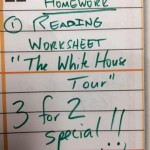 HOMEWORK
① READING
WORKSHEET
"The White House
Tour"
3 for 2
special!!